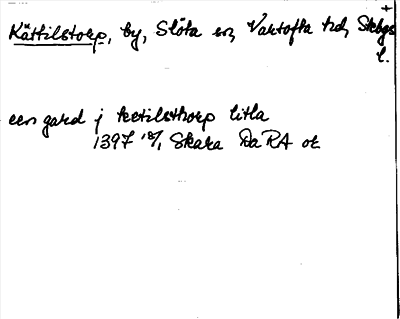 Kättilstorp, by, Slöta sn, Vartofta hd, Skbgs
l.
een gard j ketilsthorp litla
1397 18/1 Skara Da RA or